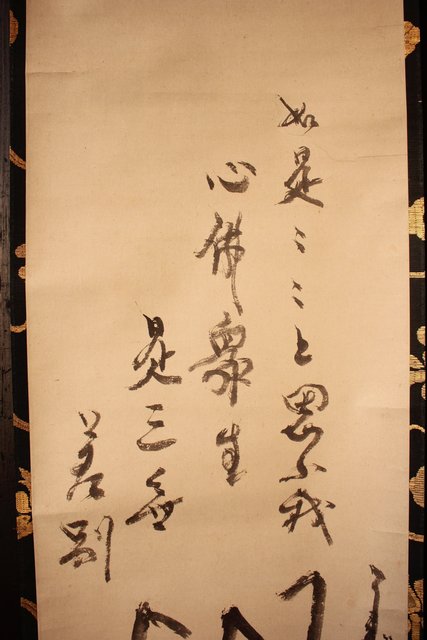 如是ミミと思ふ我
心佛衆生
是三無
差別